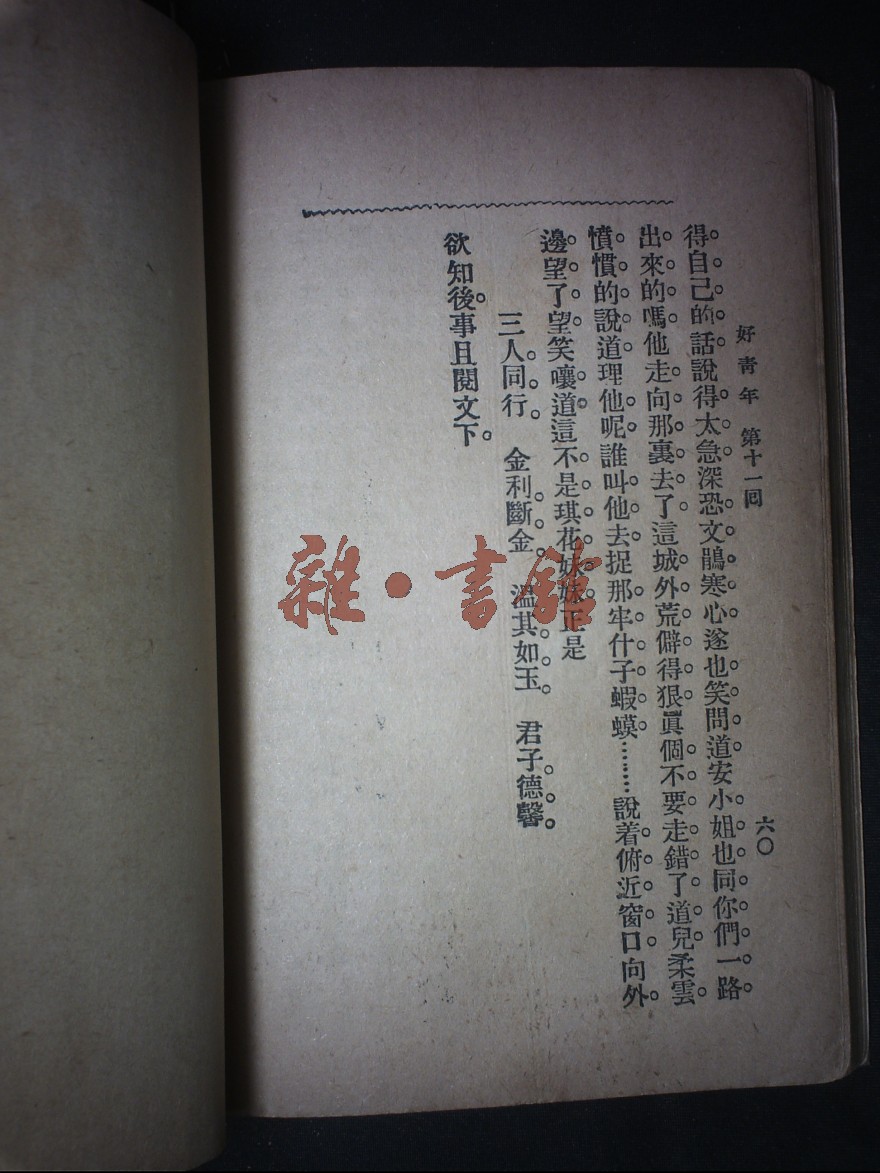 好青年 第十一回 六〇
得自己的話說得太急深恐文鵑寒心遂也笑問道安小姐也同你們一路
出來的嗎他走向那裏去了這城外荒僻得狠眞個不要走錯了道兒柔雲
憤慣的說道理他呢誰叫他去捉那牢什子蝦蟆………說着俯近窗口向外
邊望了望笑嚷道這不是琪花妹妹正是
三人同行 金利斷金 溫其如玉 君子德馨
欲知後事且閱文下
雜·書館